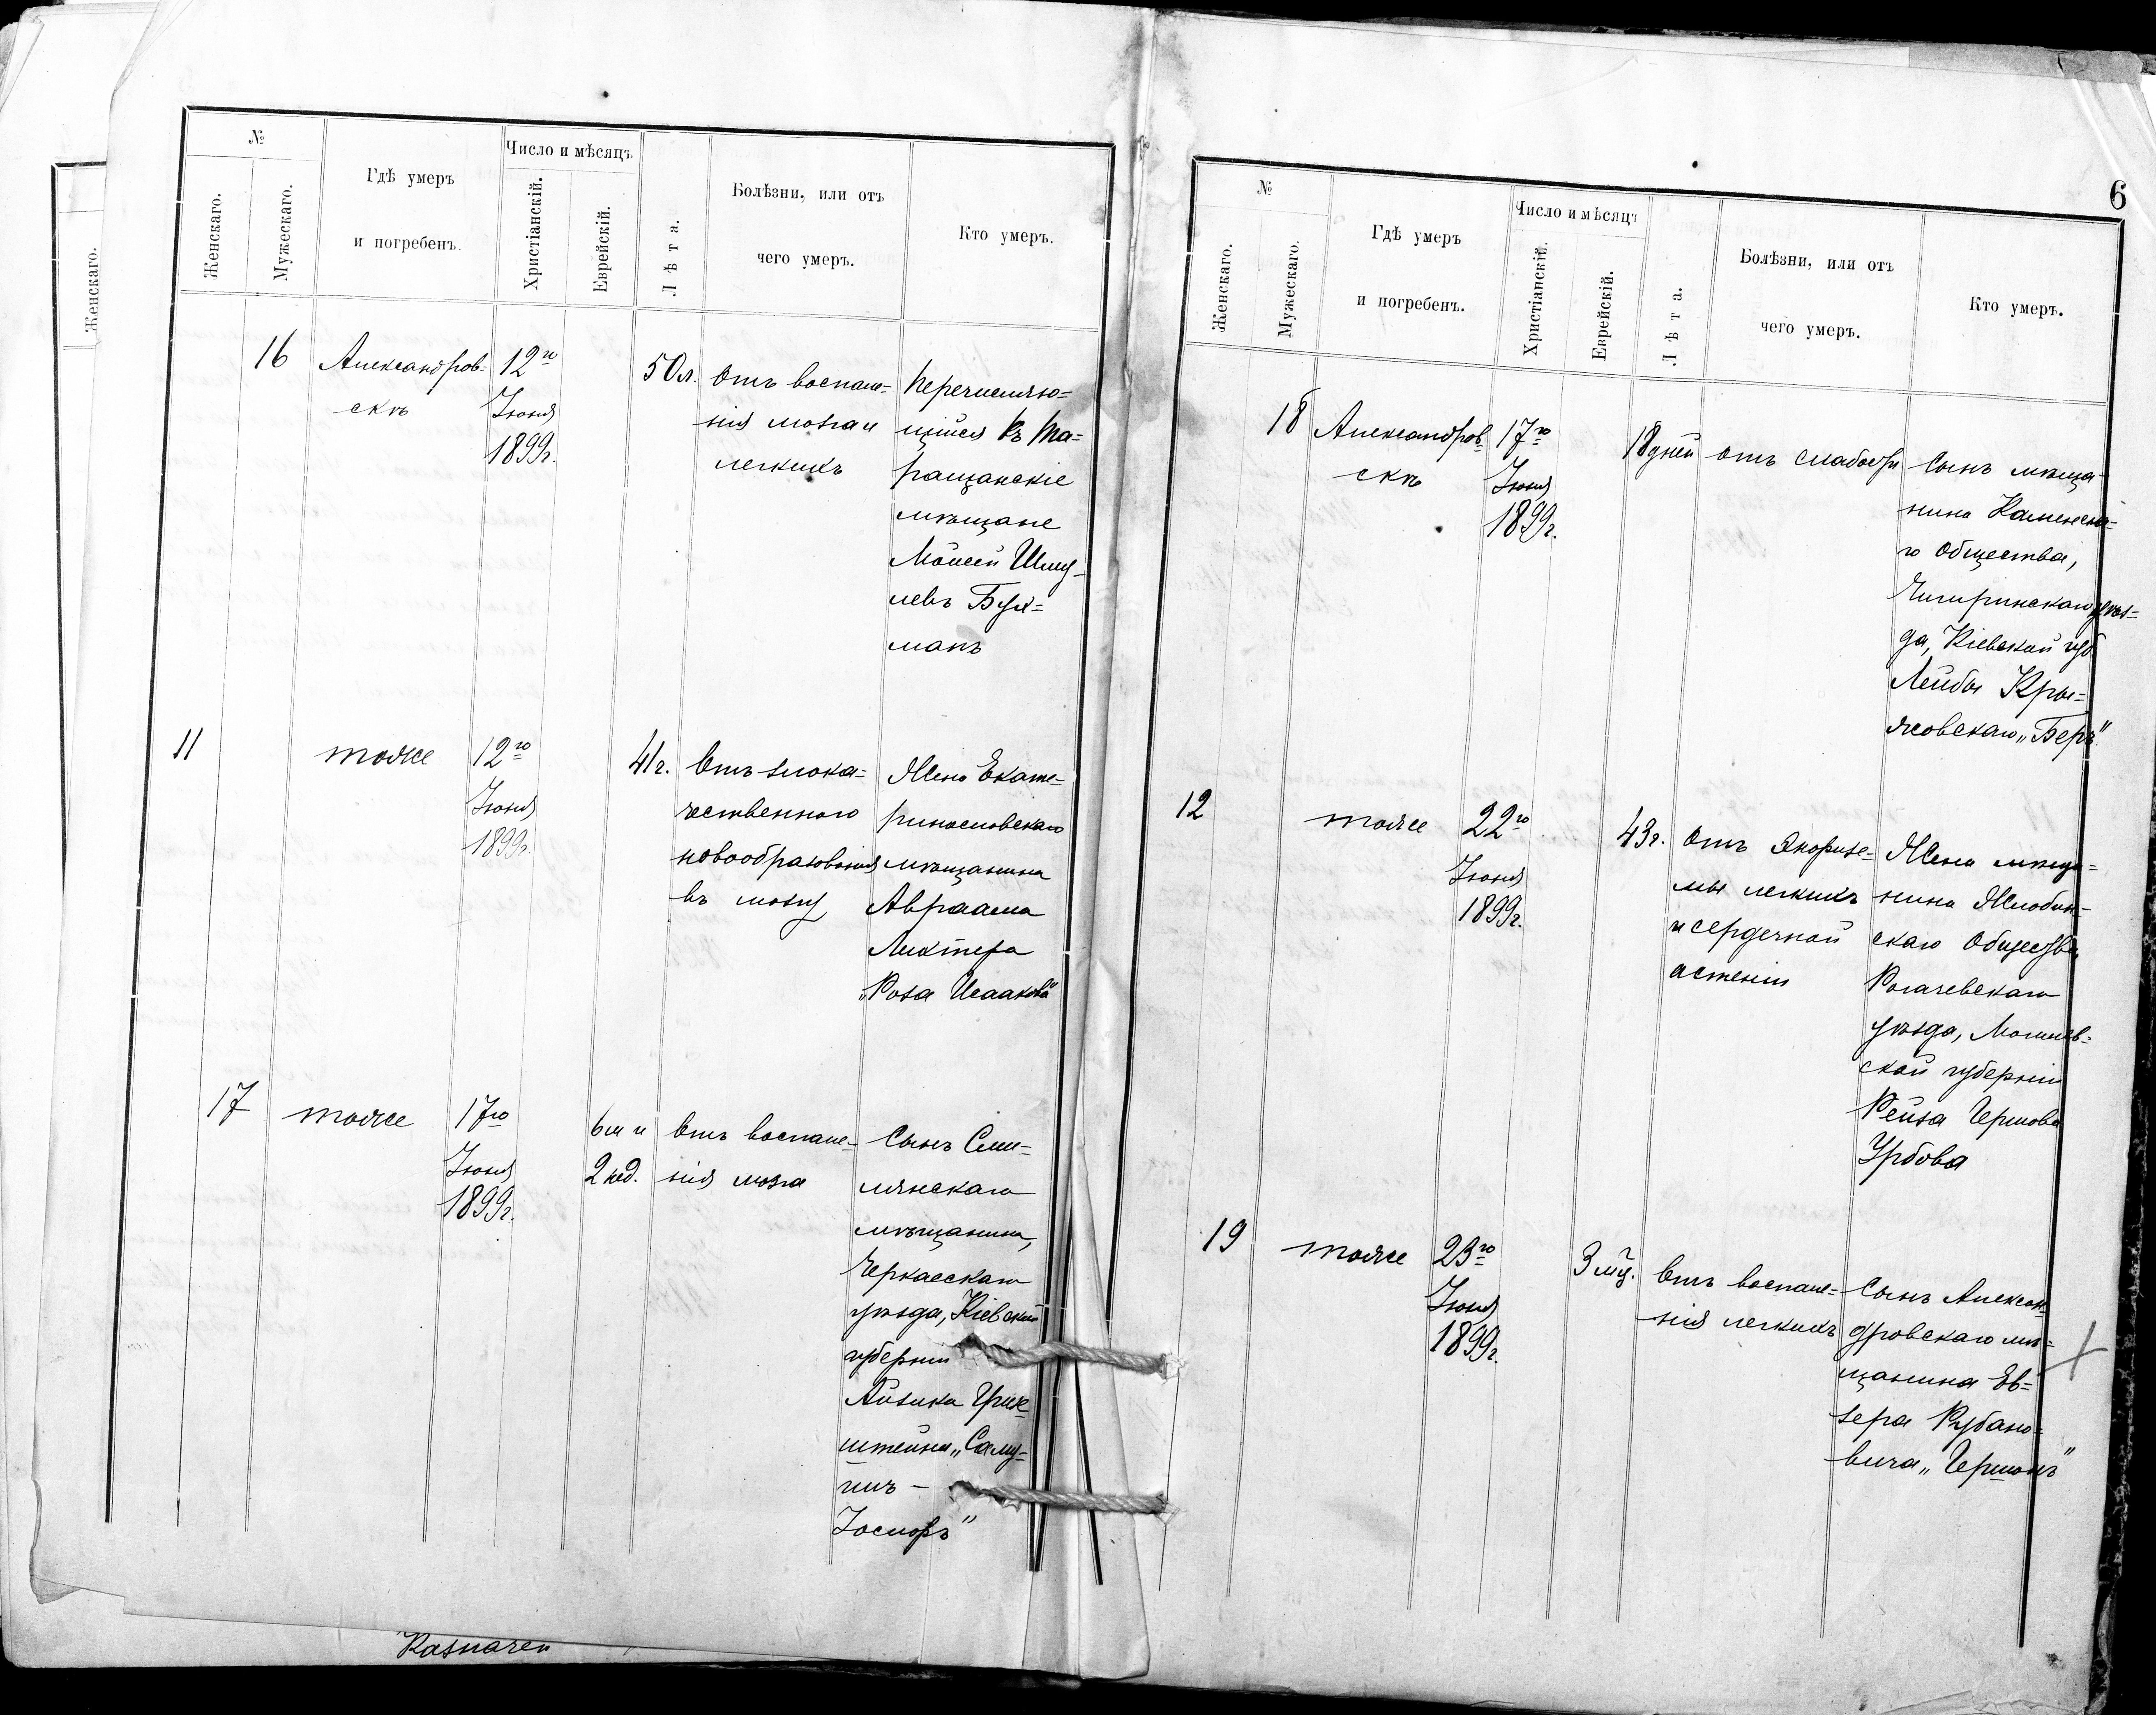 №
Число и мѣсяцъ
Женскаго.
Мужескаго.
Гдѣ умеръ
и погребенъ.
Христіанскій.
Еврейскій.
Лѣта.
Болѣзни, или отъ
чего умеръ.
Кто умеръ.
Женскаго.
16
Александров=
скъ
12го
Іюня
1899г.
50л.
Отъ воспале=
нія мозга и
легкихъ
Перечисляю=
щійся къ Та=
ращанскіе
мѣщане
Мойсей Шму=
левъ Бух=
манъ
11
тоже
12го
Іюня
1899г.
41г.
Отъ злока=
чественного
новообразованія
въ мозгу
Жена Екате=
ринославскаго
мѣщанина
Авраама
Лихтера
„Роза Исаакова"
17
тоже
17го
Іюня
1899г.
6 м и
2 нед.
Отъ воспале=
нія мозга
Сынъ Сми=
лянскаго
мѣщанина,
Черкасскаго
уѣзда, Кіевской
губерніи
Айзика Грин=
штейна „Саму=
илъ —
Іосифъ"
Казначеи
6
№
Число и мѣсяцъ
Женскаго.
Мужескаго.
Гдѣ умеръ
и погребенъ.
Христіанскій.
Еврейскій.
Лѣта.
Болѣзни, или отъ
чего умеръ.
Кто умеръ.
18
Александров=
скъ
17го
Іюня
1899г.
18 дней
отъ слабости
Сынъ мѣща=
нина Каменска=
го Общества,
Чигиринскаго уѣз=
да, Кіевской губ
Лейбы Кры=
жовскаго „Беръ"
12
тоже
22го
Іюня
1899г.
43г.
Отъ
мы легкихъ
и сердечной
астеніи
Жена мѣща=
нина Жлобин=
скаго Общества
Рогачевскаго
уѣзда, Могилев=
ской губерніи
Рейза Гершова
Урбова
19
тоже
23го
Іюня
1899г.
3 мц.
Отъ воспале=
нія легкихъ
Сынъ Алексан=
дровскаго мѣ=
щанина Ев=
зера Рубано=
вича „Гершонъ"